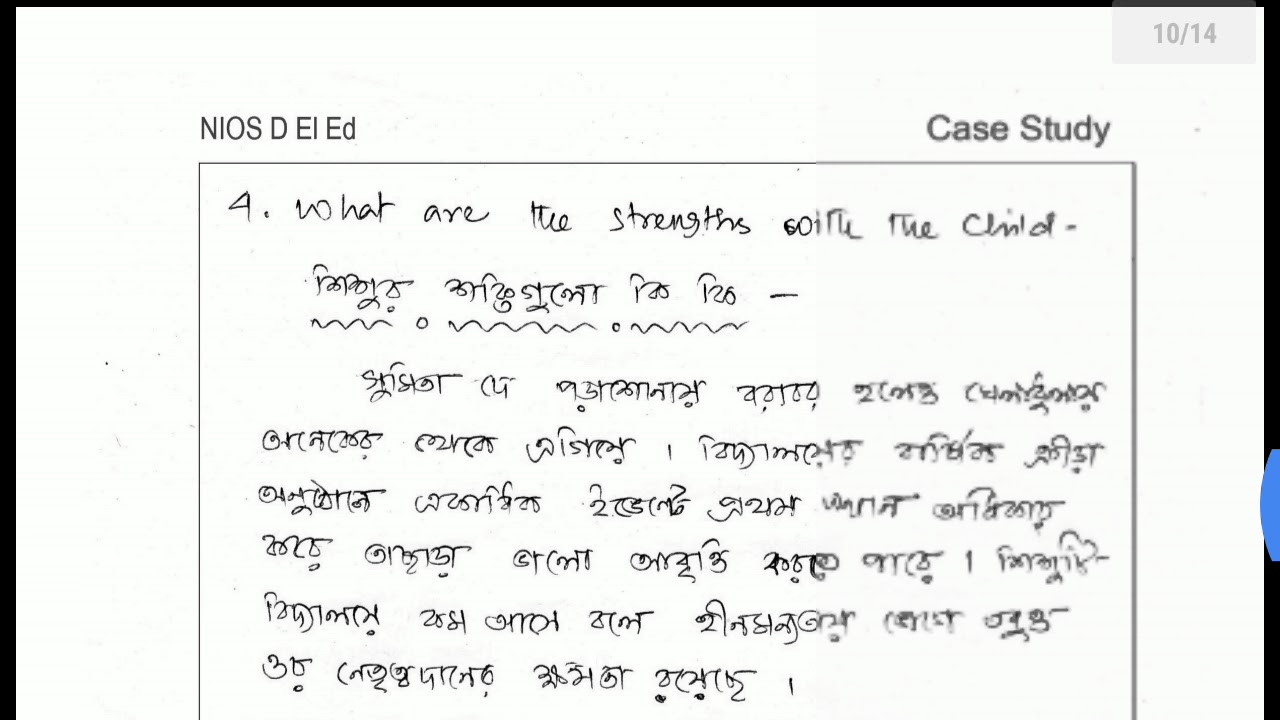 10/14
NIOS D El Ed
Case Study
4. What are the strengths with the Child -
শিশুর শক্তিগুলো কি কি —
সুমিতা দে পড়াশোনায় বরাবর হলেও খেলাধুলায়
অনেকের থেকে এগিয়ে । বিদ্যালয়ের বার্ষিক ক্রীড়া
অনুষ্ঠানে একাধিক ইভেন্টে প্রথম স্থান অধিকার
করে তাছাড়া ভালো আবৃত্তি করতে পারে । শিশুটি-
বিদ্যালয়ে কম আসে বলে হীনমন্যতায় ভোগে তবুও
ওর নেতৃত্বদানের ক্ষমতা রয়েছে ।